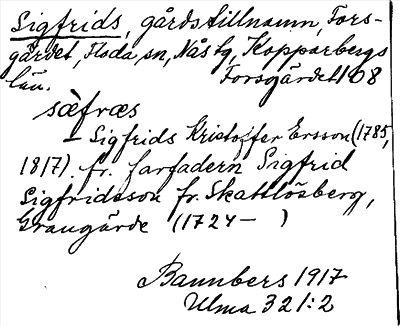 Sigfrids, gårdstillnamn, Fors-
gärdet, Floda sn, Nås tg, Kopparbergs
län. Forsgärdet 108
sæ̀fræs
– Sigfrids Kristoffer Ersson (1785,
1817) fr. farfadern Sigfrid
Sigfridsson fr. Skattlösberg,
Grangärde (1724 – )
Bannbers 1917
Ulma 321:2